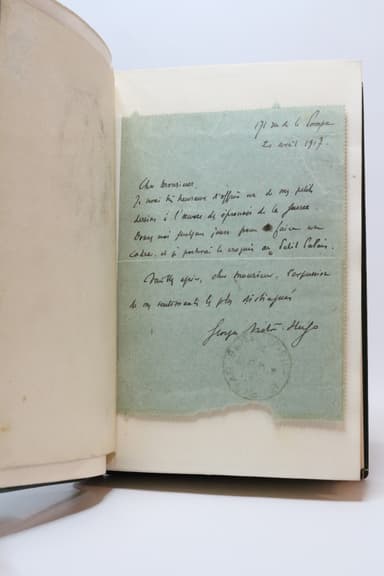 171 rue de la Pompe
20 avril 1917.
Cher Monsieur,
Je serai très heureux d'offrir un de mes petits
dessins à l'œuvre des éprouvés de la Guerre
Donnez moi quelques jours pour faire un
cadre, et je porterai le croquis au Petit Palais.
Veuillez agréer, cher Monsieur, l'expression
de mes sentiments les plus distingués
Georges Victor-Hugo